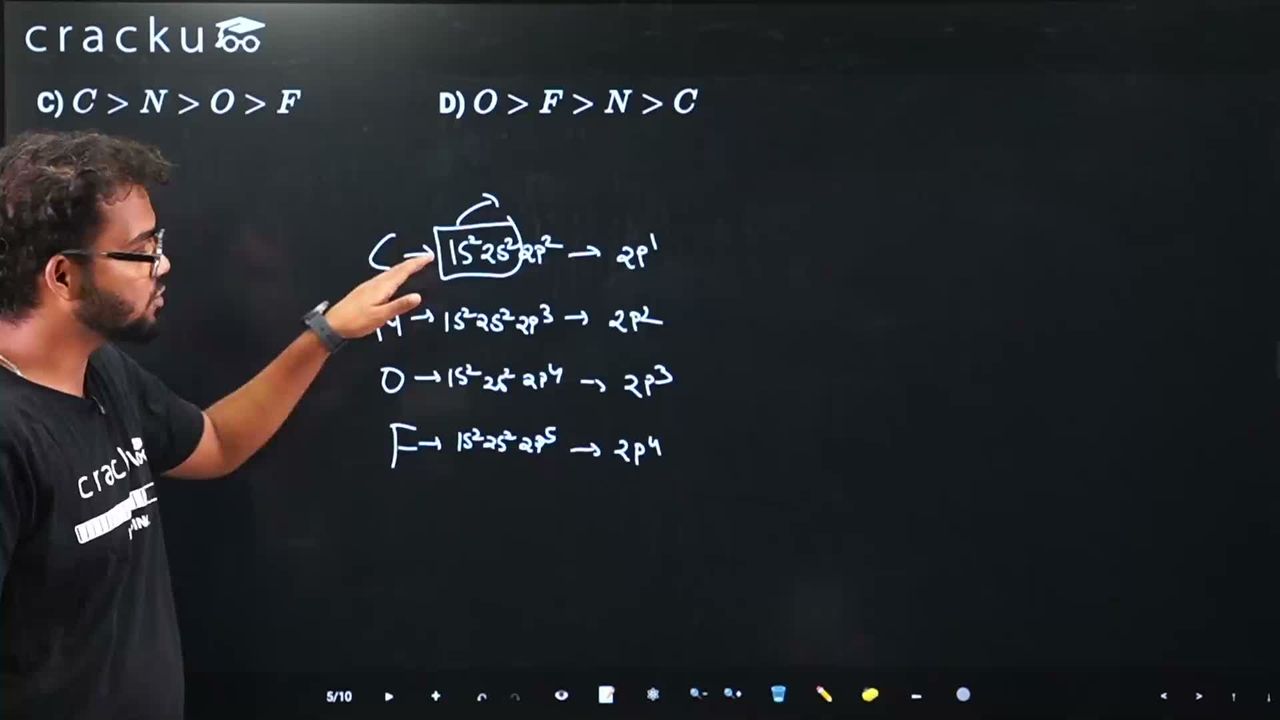 cracku
C) C > N > O > F
D) O > F > N > C
C → 1s² 2s² 2p² → 2p¹
→ 1s² 2s² 2p³ → 2p²
O → 1s² 2s² 2p⁴ → 2p³
F → 1s² 2s² 2p⁵ → 2p⁴
5/10